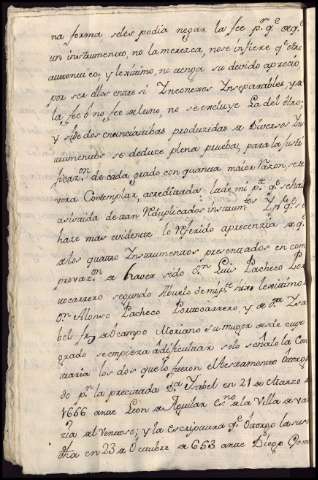 na forma seles podia negar la fee p.r q.e
un instrumento, no la merezca, no se infiere q.e otro
autentico, y lexitimo, no tenga su devido aprecio
por ser ellos entre si Inconexos Inseparables, y a
la fee ó no fee de uno, no se excluye la del otro,
y si de dos enunciativas produzidas de Diversos Ins
trumentos se deduce plena prueba, para la justi
ficaz.n de cada grado con quanta maior razon, se de
verá Contemplar, acreditada la de mi p.te q.e se ha
asistida de tan Reduplicados instrum.tos q.e se
haze mas evidente lo Referido aprecienzia
de los quatro Instrumentos presentados en com
provaz.n de haver sido D.n Luis Pacheco Por
tocarrero segundo Abuelo de mi p.te hixo lexitimo de
D.n Alonso Pacheco Portocarrero, y de D.a Isa
bel de Ocampo Moriano su muger desde cuyo
grado se empieza a dificultar solo señalo la Con
traria los dos que lo fueron el testamento otorg.do
p.r la precitada D.a Isabel en 21 de Marzo de
1666 ante Leon de Aguilar Es.no de la Villa de
del Ventoso; y la escriptura q.e otorgo la
dha en 23 de Octubre de 653 ante Diego